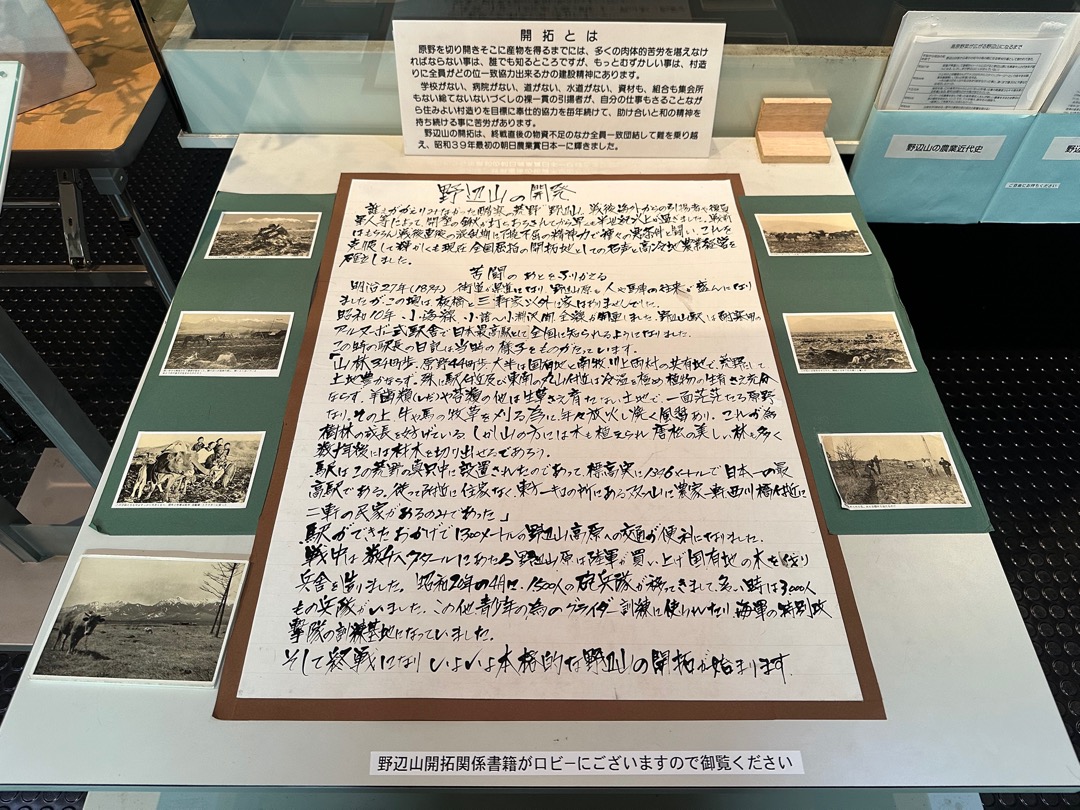 開拓とは
原野を切り開きそこに産物を得るまでには、多くの肉体的苦労を堪えなけ
ればならない事は、誰でも知るところですが、もっとむずかしい事は、村造
りに全員がどの位一致協力出来るかの建設精神にあります。
学校がない、病院がない、道がない、水道がない、資材も、組合も集会所
もない総てないないづくしの裸一貫の引揚者が、自分の仕事もさることなが
ら住みよい村造りを目標に奉仕的協力を毎年続けて、助け合いと和の精神を
持ち続ける事に苦労があります。
野辺山の開拓は、終戦直後の物資不足のなか全員一致団結して難を乗り越
え、昭和39年最初の朝日農業賞日本一に輝きました。
野辺山の農業近代史
ご自由にお持ちください
野辺
野辺山の開発
誰もかえりみなかった酷寒、荒野「野辺山」戦後海外からの引揚者や復員
軍人等によって開墾の鍬が打ちおろされてから早くも半世紀以上が過ぎました。戦前
はもちろん戦後直後の混乱期に不撓不屈の精神力で種々の悪条件と闘い、これを
克服して輝かしくも現在全国屈指の開拓地としての名声と高冷地農業経営を
確立しました。
苦闘のあとをふりかえる
明治27年(1894) 街道が県道になり野辺山原も人や馬車の往来が盛んになり
ましたが、この頃は、板橋と三軒家以外は家はありませんでした。
昭和10年、小海線、小諸〜小淵沢間全線が開通しました。野辺山駅は耐寒用の
アルスボ式駅舎で日本最高駅として全国に知られるようになりました。
この時の駅長の日記は当時の様子をものがたっています。
「山林 町歩、原野 町歩、大半は国有地と南牧、川上両村の共有地で、荒野にして
土地豊かならず。殊に駅付近及び東南の丸山付近は冷湿を極め植物の生育さえ充分
ならず、羊歯類(しだ)や苔類の他は生草さえ育たない土地で、一面茫茫たる原野
なり。その上牛や馬の牧草を刈る為に年々放火し焼く風習あり、これが為
樹林の成長を妨げている。しかし山の方には木も植えられ唐松の美しい林も多く
数十年後には材木を切り出せるであろう。
駅はこの荒野の真只中に設置されたのであって、標高実に1346メートルで日本一の最
高駅である。従って附近に住家なく、東方一キロの所にある二ツ山に農家一軒、西川橋付近に
二軒の民家があるのみであった」
駅ができたおかげで1300メートルの野辺山高原への交通が便利になりました。
戦中は数千ヘクタールにわたる野辺山原は陸軍が買い上げ国有地の木を伐り
兵舎を造りました。昭和20年の4月に、1500人の砲兵隊が移ってきまして、多い時は3000人
もの兵隊がいました。この他青少年の為のグライダー訓練に使われたり、海軍の特別攻
撃隊の訓練基地になっていました。
そして終戦になりいよいよ本格的な野辺山の開拓が始まります
野辺山開拓関係書籍がロビーにございますので御覧ください